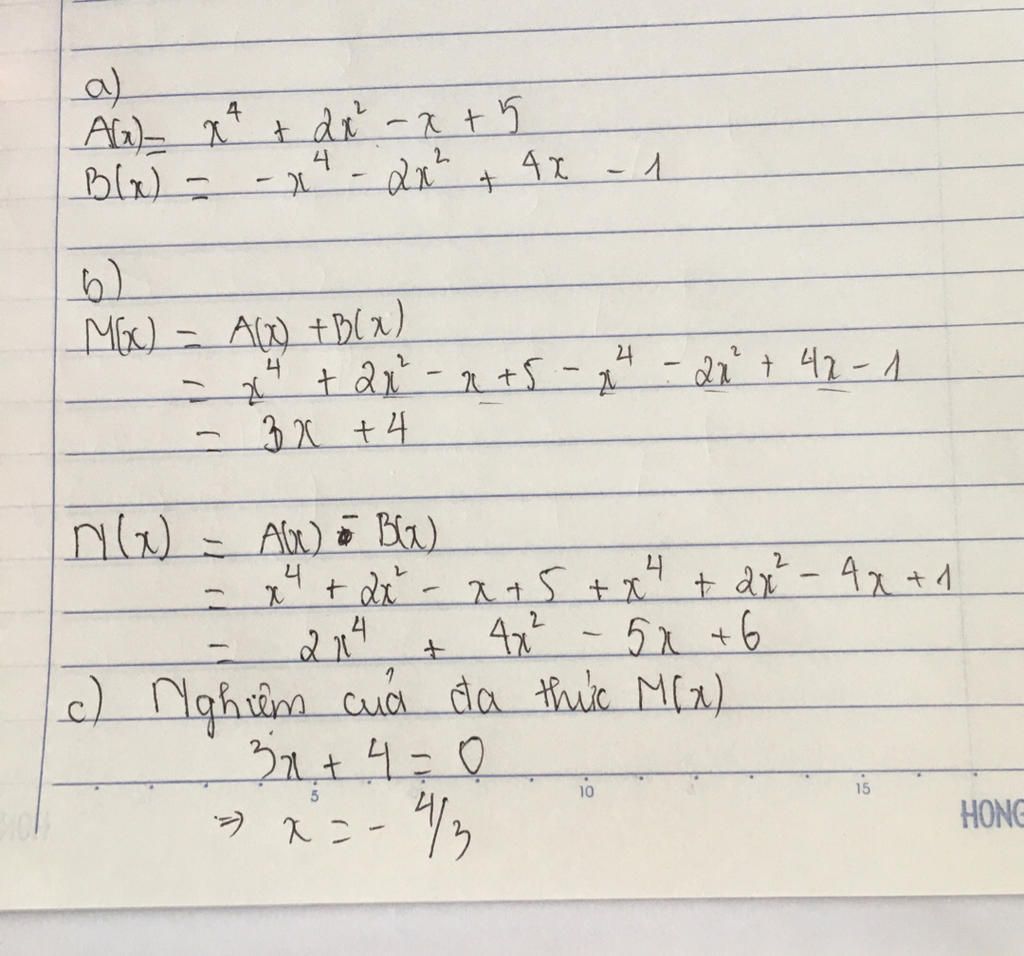 a)
A(x) = x⁴ + 2x² - x + 5
B(x) = -x⁴ - 2x² + 4x - 1
b)
M(x) = A(x) + B(x)
= x⁴ + 2x² - x + 5 - x⁴ - 2x² + 4x - 1
= 3x + 4
N(x) = A(x) - B(x)
= x⁴ + 2x² - x + 5 + x⁴ + 2x² - 4x + 1
= 2x⁴ + 4x² - 5x + 6
c) Nghiệm của đa thức M(x)
3x + 4 = 0
5 10 15
⇒ x = - 4/3
HONG